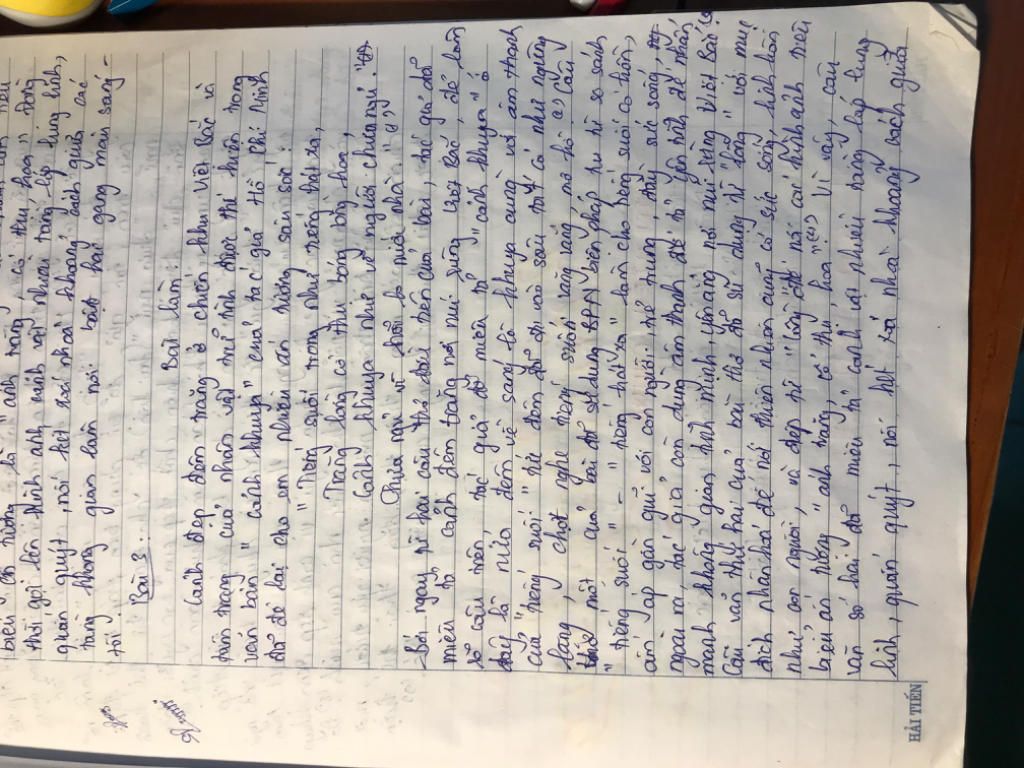 thời gợi lên hình ảnh sinh vật, nhiều tầng lớp lung linh,
quấn quýt, nói hết xoá nhoà khoảng cách giữa các
tầng không gian làm nổi bật hai gam màu sáng -
tối.
Bài 3:
Bài làm:
Cảnh đẹp đêm trăng ở chiến khu Việt Bắc và
tâm trạng của nhân vật trữ tình được thể hiện trong
văn bản "cảnh khuya" của tác giả Hồ Chí Minh
đã để lại cho em nhiều ấn tượng sâu sắc:
"Tiếng suối trong như tiếng hát xa,
Trăng lồng cổ thụ bóng lồng hoa,
Cảnh khuya như vẽ người chưa ngủ.
Chưa ngủ vì nỗi lo nước nhà"
Bởi ngay, từ hai câu thơ đầu tiên của bài, tác giả đã
miêu tả cảnh đêm trăng nơi núi rừng Việt Bắc, để làm
rõ câu trên, tác giả đã miêu tả "cảnh khuya" ở
đây là núi đêm về sáng. Cảnh khuya cùng với âm thanh
của "tiếng suối" từ đêm đã đi vào sâu mới có như ngừng
lắng, chợt nghe tiếng suối văng vẳng, mơ hồ
một quả bài đã sử dụng BPNT biện pháp tu từ so sánh
"tiếng suối" - "tiếng hát xa" làm cho tiếng suối có hồn,
ấm áp gần gũi với con người: trẻ trung, đầy sức sống,
ngoài ra, tác giả còn dùng âm thanh để tả yên tĩnh để nhấn
mạnh không gian tĩnh mịch, yên ắng nơi núi rừng Việt Bắc
Câu văn thứ hai của bài thơ đã sử dụng từ "lồng" với mục
đích nhân hoá để nói thiên nhiên cũng có sức sống, linh hồn
như con người, và điệp từ "lồng" nối các hình ảnh nối
biện án bóng "ánh trăng, cổ thụ, hoa" Vì vậy, câu
văn số hai đã miêu tả cảnh vật nhiều tầng lớp lung
linh, quấn quýt, nối hết xoá nhoà khoảng cách giữa
HẢI TIẾN